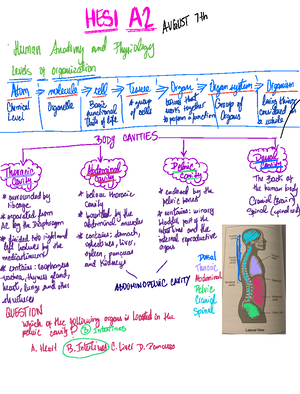 HESI A2 AUGUST 7th
Human Anatomy and Physiology
Levels of organization
Atom → molecule → cell → Tissue → Organ → Organ system → Organism
Chemical Level
Organelle
Basic functional Unit of life
A group of cells
tissues that works together to perform a function
Group of Organs
living things considered as a whole
BODY CAVITIES
Thoracic Cavity
* surrounded by ribcage
* separated from AC by the Diaphragm
* divided into right and left halves by the mediastinum
* contains: esophagus trachea, thymus gland, heart, lungs and other structures
Abdominal Cavity
* below thoracic cavity
* bounded by the abdominal muscles
* contains: stomach, spleen, liver, pancreas and kidneys
Pelvic Cavity
* enclosed by the pelvic bones
* contains: urinary bladder, part of the intestines and the internal reproductive organs
Dorsal Cavity
The back of the human body
Cranial (brain)
Spinal (spinal cord)
ABDOMINOPELVIC CAVITY
Dorsal
Thoracic
Abdominal
Pelvic
Cranial
Spinal
Lateral View
QUESTION
Which of the following organs is located in the pelvic cavity? B Intestines
A. Heart B. Intestines C. Liver D. Pancreas